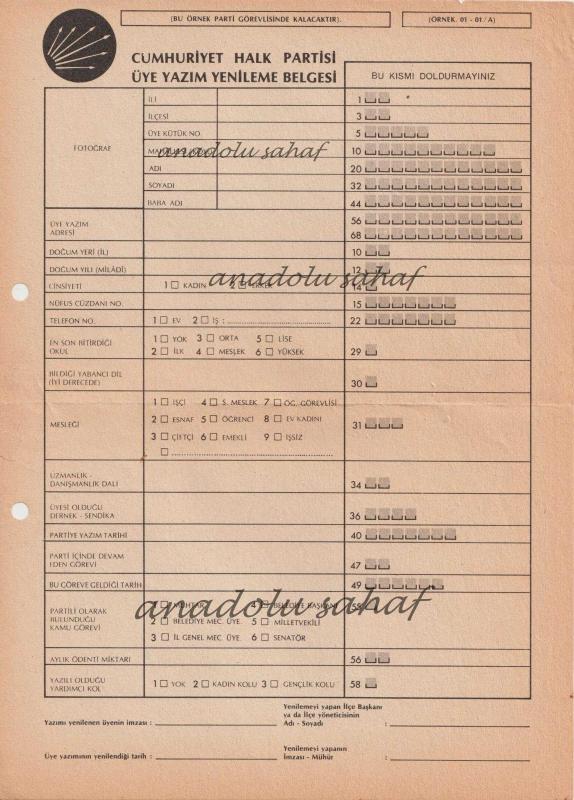 (BU ÖRNEK PARTİ GÖREVLİSİNDE KALACAKTIR).
(ÖRNEK. 01 - 01/A)
CUMHURİYET HALK PARTİSİ
ÜYE YAZIM YENİLEME BELGESİ
BU KISMI DOLDURMAYINIZ
FOTOĞRAF
İLİ 1
İLÇESİ 3
ÜYE KÜTÜK NO. 5
anadolu sahaf 10
ADI 20
SOYADI 32
BABA ADI 44
ÜYE YAZIM 56
ADRESİ 68
DOĞUM YERİ (İL) 10
DOĞUM YILI (MİLÂDİ) 12
anadolu sahaf
CİNSİYETİ 1 KADIN 2 ERKEK 14
NÜFUS CÜZDANI NO. 15
TELEFON NO. 1 EV 2 İŞ : 22
EN SON BİTİRDİĞİ OKUL 1 YOK 3 ORTA 5 LİSE
2 İLK 4 MESLEK 6 YÜKSEK 29
BİLDİĞİ YABANCI DİL
(İYİ DERECEDE) 30
1 İŞÇİ 4 S. MESLEK 7 ÖĞ. GÖREVLİSİ
MESLEĞİ 2 ESNAF 5 ÖĞRENCİ 8 EV KADINI 31
3 ÇİFTÇİ 6 EMEKLİ 9 İŞSİZ
UZMANLIK -
DANIŞMANLIK DALI 34
ÜYESİ OLDUĞU
DERNEK - SENDİKA 36
PARTİYE YAZIM TARİHİ 40
PARTİ İÇİNDE DEVAM
EDEN GÖREVİ 47
BU GÖREVE GELDİĞİ TARİH 49
anadolu sahaf
PARTİLİ OLARAK
BULUNDUĞU
KAMU GÖREVİ
1 MUHTAR 4 BELEDİYE BAŞKANI 55
2 BELEDİYE MEC. ÜYE. 5 MİLLETVEKİLİ
3 İL GENEL MEC. ÜYE. 6 SENATÖR
AYLIK ÖDENTİ MİKTARI 56
YAZILI OLDUĞU
YARDIMCI KOL 1 YOK 2 KADIN KOLU 3 GENÇLİK KOLU 58
Yazımı yenilenen üyenin imzası :
Yenilemeyi yapan İlçe Başkanı
ya da İlçe yöneticisinin
Adı - Soyadı :
Üye yazımının yenilendiği tarih :
Yenilemeyi yapanın
İmzası - Mühür :